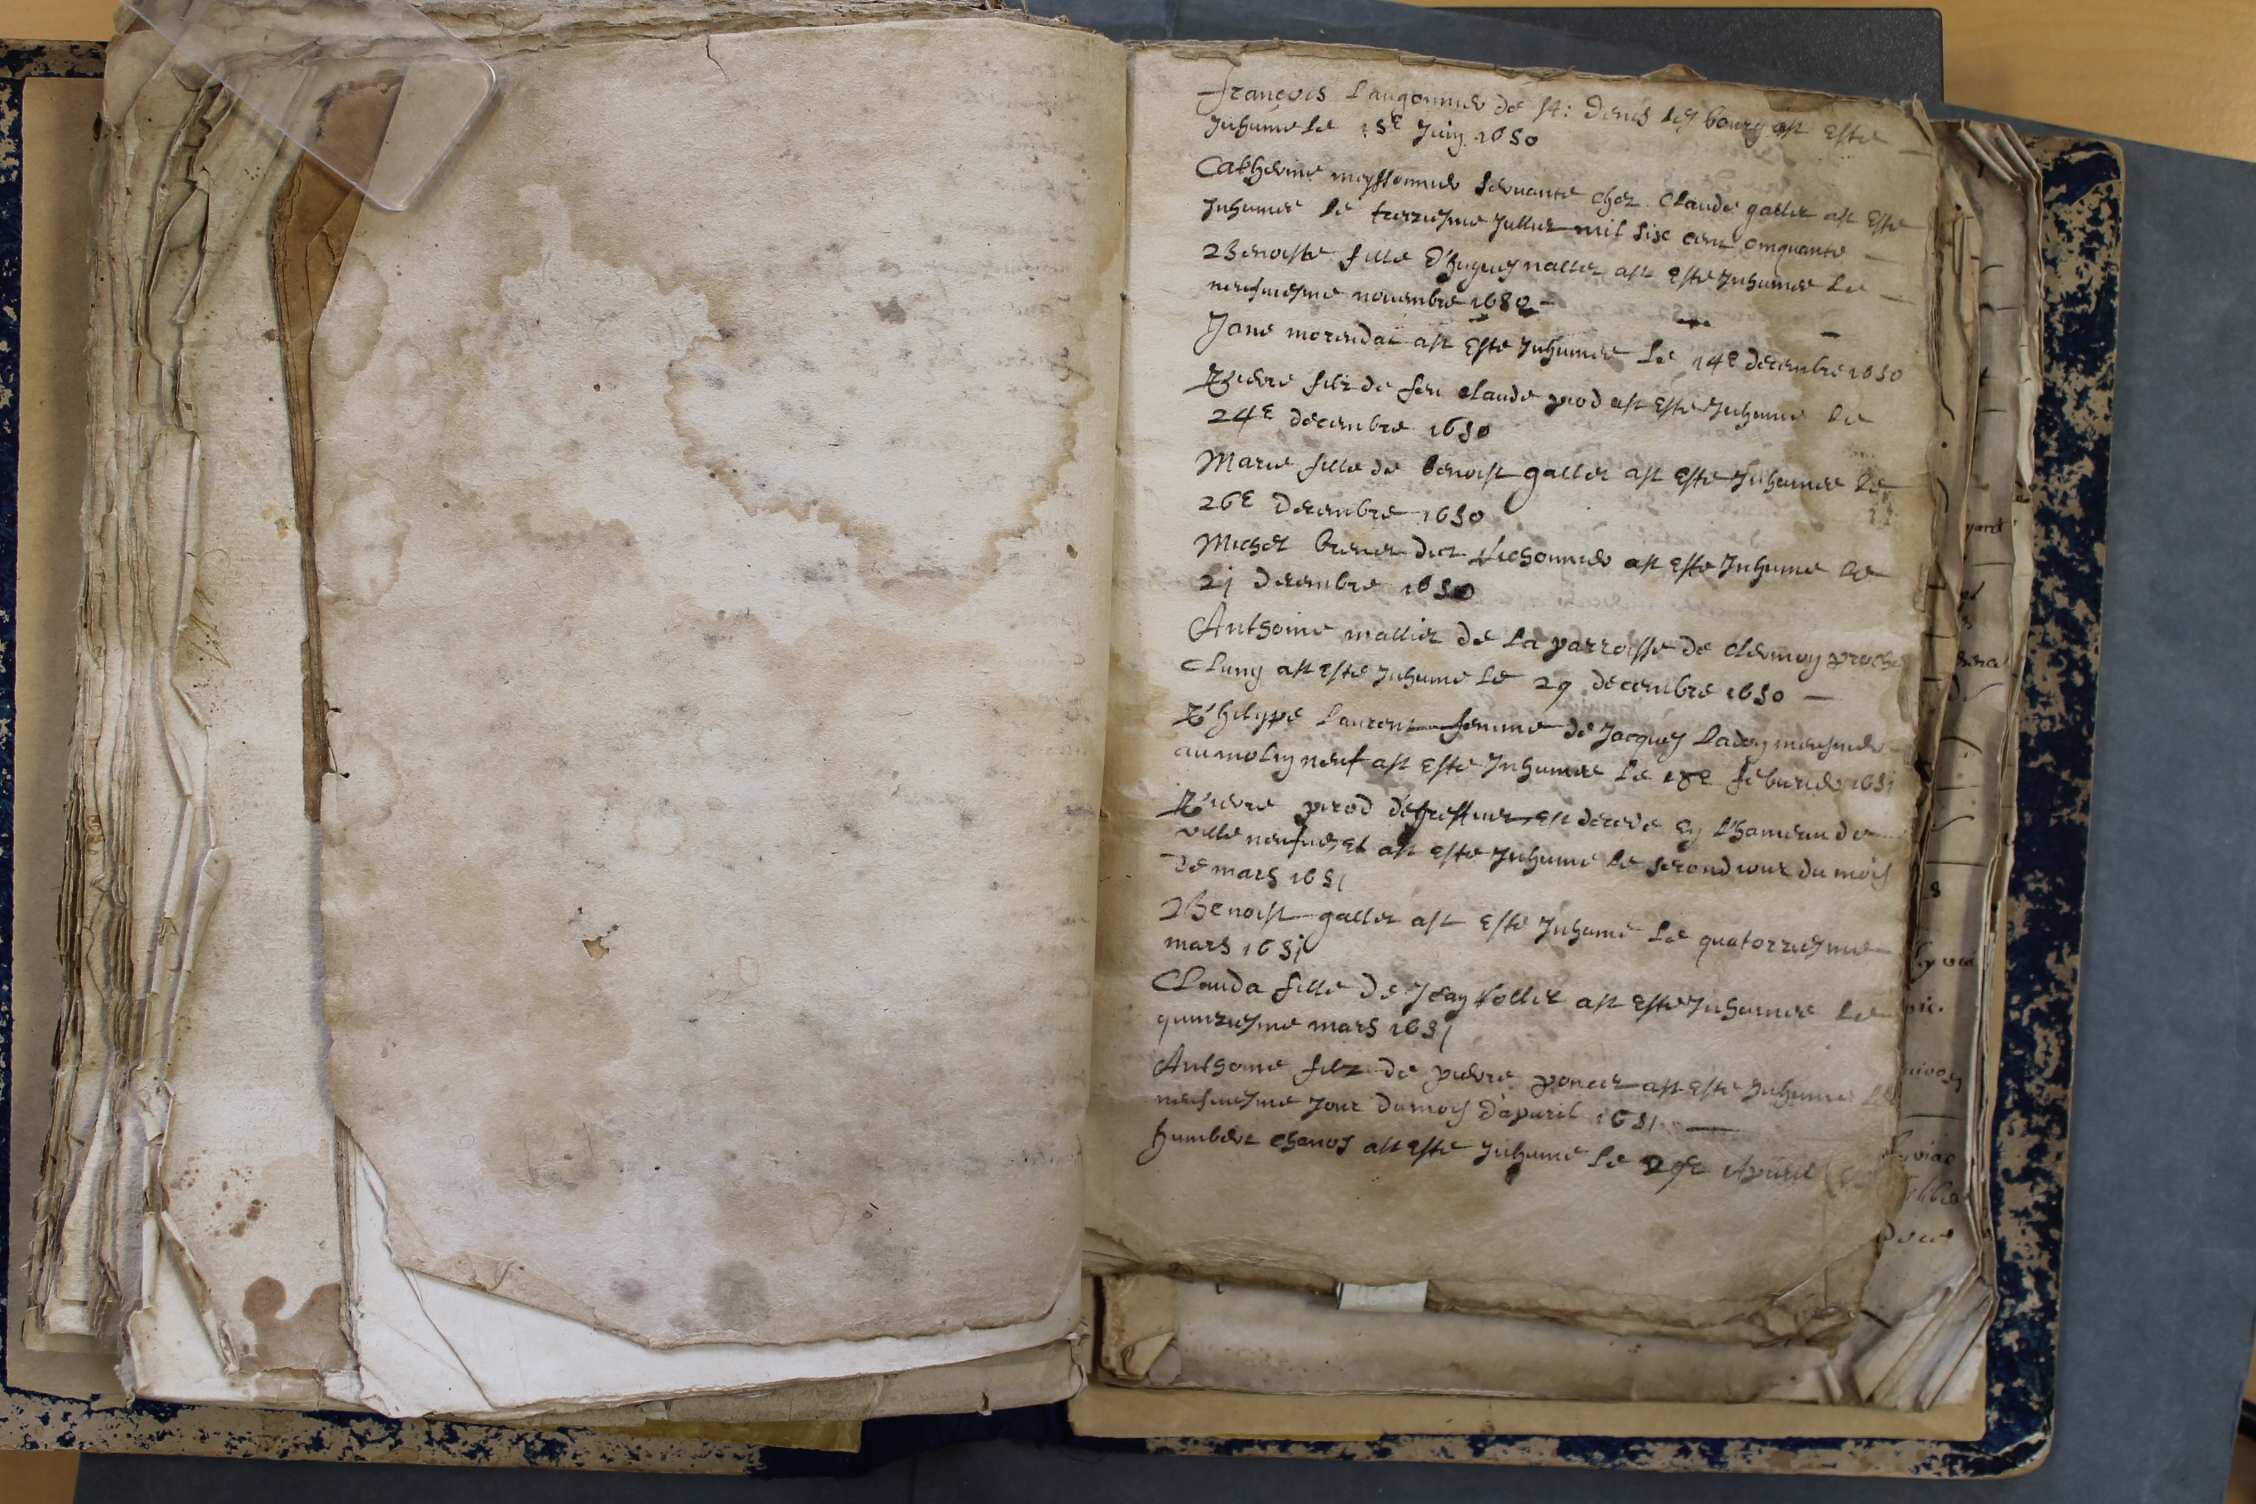 françois Laugonnier de St: Denis les bourg ast Esté
Inhumé Le 15e Juin 1650
Catherine meyssonnier servante chez Claude gallet ast Esté
Inhumée Le treziesme Jullet mil six cent cinquante
Benoiste fille D'hugues nallet ast Esté Inhumée Le
neufuiesme nouembre 1650
Jane morendat ast Esté Inhumée Le 14e decembre 1650
Pierre filz de feu claude prod ast Esté Inhumé Le
24e decembre 1650
Marie fille de benoist gallet ast Esté Inhumée Le
26e Decembre 1650
Michel dict ast Esté Inhumé Le
2j decembre 1650
Anthoine mallier de La parroisse de proche
Cluny ast Esté Inhumé Le 29 decembre 1650
Philippe Laurent femme de Jacques Ladoy
au molin neuf ast Esté Inhumée Le 18e feburier 1651
Pierre perod est decedé En L'hameau de
ville neufue et ast esté Inhumé Le second iour du mois
de mars 1651
Benoist gallet ast Esté Inhumé Le quatorziesme
mars 165j
Clauda fille de Jean ast Esté Inhumée Le
quinziesme mars 1651
Anthoine filz de pierre poncet ast Esté Inhumé Le
neufuiesme Jour du mois d'apuril 1651
humbert chanos ast Esté Inhumé Le Apuril